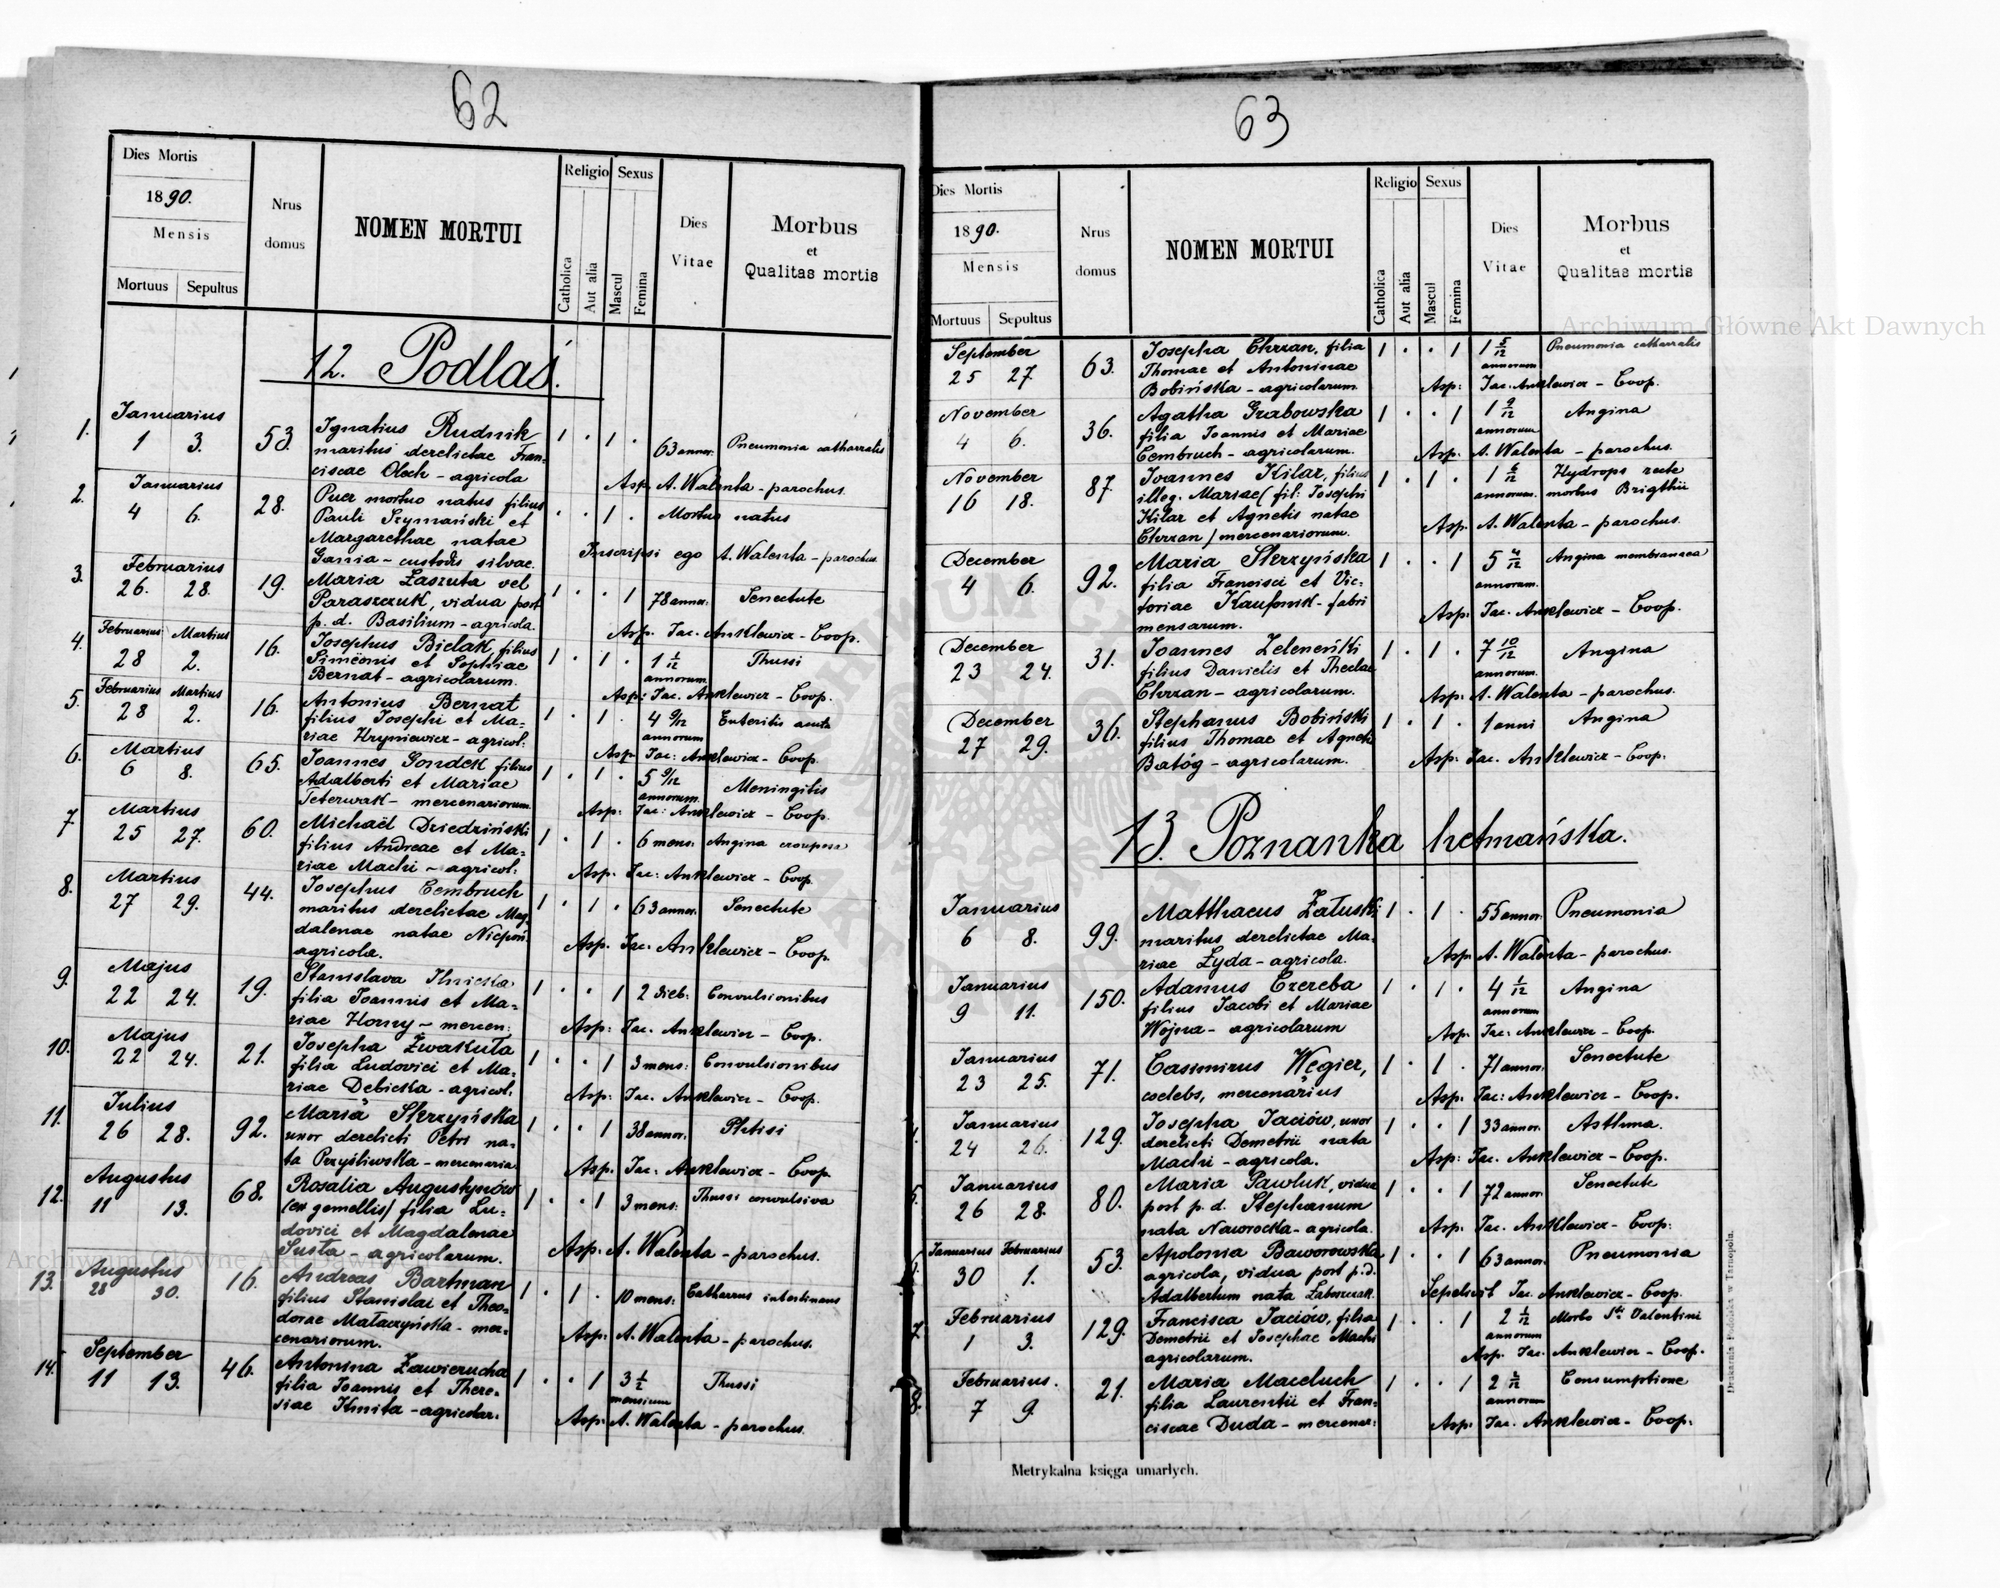 62
Dies Mortis
1890.
Mensis
Mortuus Sepultus
Nrus
domus
NOMEN MORTUI
Religio
Catholica
Aut alia
Sexus
Mascul
Femina
Dies
Vitae
Morbus
et
Qualitas mortis
12. Podlaś.
1. Januarius
1 3. 53. Ignatius Rudnik
maritus derelictae Fran-
ciscae Olech - agricola
1 . 1 . 63 annor: Pneumonia catharralis
Asp. A. Walenta - parochus.
2. Januarius
4 6. 28. Puer mortuo natus filius
Pauli Szymański et
Margarethae natae
Gania - custodis silvae.
. . 1 . Mortuo natus
Inscripsi ego A. Walenta - parochus
3. Februarius
26. 28. 19. Maria Łaszuta vel
Paraszczuk, vidua post
p. d. Basilium - agricola.
1 . . 1 78 annor: Senectute
Asp. Jac. Anklewicz - Coop.
4. Februarius Martius
28 2. 16. Josephus Bielak, filius
Simeonis et Sophiae
Bernat - agricolarum.
1 . 1 . 1 1/12 annorum Thussi
Asp: Jac. Anklewicz - Coop.
5. Februarius Martius
28 2. 16. Antonius Bernat
filius Josephi et Ma-
riae Hryniewicz - agricol:
1 . 1 . 4 9/12 annorum Enteritis acuta
Asp. Jac: Anklewicz - Coop.
6. Martius
6 8. 65. Joannes Gondek filius
Adalberti et Mariae
Teterwak - mercenariorum.
1 . 1 . 5 9/12 annorum. Meningitis
Asp: Jac: Anklewicz - Coop.
7. Martius
25 27. 60. Michaël Dziedziński
filius Andreae et Ma-
riae Machi - agricol:
1 . 1 . 6 mens: Angina crouposa
Asp. Jac: Anklewicz - Coop.
8. Martius
27 29. 44. Josephus Cembruch
maritus derelictae Mag-
dalenae natae Niepoń.
agricola.
1 . 1 . 63 annor. Senectute
Asp. Jac. Anklewicz - Coop.
9. Majus
22 24. 19. Stanislava Ilnicka
filia Joannis et Ma-
riae Horny - mercen:
1 . . 1 2 dieb: Convulsionibus
Asp: Jac. Anklewicz - Coop.
10. Majus
22 24. 21. Josepha Żwakuta
filia Ludovici et Ma-
riae Dębicka - agricol.
1 . . 1 3 mens: Convulsionibus
Asp: Jac. Anklewicz - Coop.
11. Julius
26 28. 92. Maria Skrzyńska
uxor derelicti Petri na-
ta Przyśliwska - mercenaria
1 . . 1 38 annor: Phtisi
Asp. Jac: Anklewicz - Coop.
12. Augustus
11 13. 68. Rosalia Augustynów
(ex gemellis) filia Lu-
dovici et Magdalenae
Susła - agricolarum.
1 . . 1 3 mens: Thussi convulsiva
Asp: A. Walenta - parochus.
13. Augustus
28 30. 16. Andreas Bartman
filius Stanislai et Theo-
dorae Małaczyńska - mer-
cenariorum.
1 . 1 . 10 mens: Catharrus intestinans
Asp: A. Walenta - parochus.
14. September
11 13. 46. Antonina Zawierucha
filia Joannis et There-
siae Kmita - agricolar:
1 . . 1 3 1/2 mensium Thussi
Asp: A. Walenta - parochus.
63
Dies Mortis
1890.
Mensis
Mortuus Sepultus
Nrus
domus
NOMEN MORTUI
Religio
Catholica
Aut alia
Sexus
Mascul
Femina
Dies
Vitae
Morbus
et
Qualitas mortis
September
25 27. 63. Josepha Chrzan, filia
Thomae et Antoninae
Bobińska - agricolarum.
1 . . 1 1 5/12 annorum Pneumonia catharralis
Asp: Jac. Anklewicz - Coop.
November
4 6. 36. Agatha Grabowska
filia Joannis et Mariae
Cembruch - agricolarum.
1 . . 1 1 9/12 annorum Angina
Asp. A. Walenta - parochus.
November
16 18. 87. Joannes Kilar, filius
illeg. Mariae (fil: Josephi
Kilar et Agnetis natae
Chrzan) mercenariorum.
1 . 1 . 1 6/12 annorum. Hydrops recte
morbus Brigthii
Asp. A. Walenta - parochus.
December
4 6. 92. Maria Skrzyńska
filia Francisci et Vic-
toriae Kaufonik - fabri
mensarum.
1 . . 1 5 4/12 annorum. Angina membranaea
Asp: Jac. Anklewicz - Coop.
December
23 24. 31. Joannes Zeleneński
filius Danielis et Theclae
Chrzan - agricolarum.
1 . 1 . 7 10/12 annorum. Angina
Asp: A. Walenta - parochus.
December
27 29. 36. Stephanus Bobiński
filius Thomae et Agnetis
Batóg - agricolarum.
1 . 1 . 1 anni Angina
Asp: Jac. Anklewicz - Coop.
13. Poznanka hetmańska.
Januarius
6 8. 99. Matthaeus Załuski
maritus derelictae Ma-
riae Żyda - agricola.
1 . 1 . 55 annor. Pneumonia
Asp. A. Walenta - parochus.
Januarius
9 11. 150. Adamus Czereba
filius Jacobi et Mariae
Wojna - agricolarum
1 . 1 . 4 1/12 annorum Angina
Asp: Jac. Anklewicz - Coop.
Januarius
23 25. 71. Casimirus Węgier,
coelebs, mercenarius
1 . 1 . 71 annor: Senectute
Asp: Jac: Anklewicz - Coop.
Januarius
24 26. 129. Josepha Jaciów, uxor
derelicti Demetrii nata
Machi - agricola.
1 . . 1 33 annor. Asthma.
Asp: Jac. Anklewicz - Coop.
5. Januarius
26 28. 80. Maria Pawluk, vidua
post p. d. Stephanum
nata Naworocka - agricola.
1 . . 1 72 annor. Senectute
Asp: Jac. Anklewicz - Coop:
Januarius Februarius
30 1. 53. Apolonia Baworowska
agricola, vidua post p. d.
Adalbertum nata
1 . . 1 63 annor. Pneumonia
Sepelivit Jac. Anklewicz - Coop.
7. Februarius
1 3. 129. Francisca Jaciów, filia
Demetrii et Josephae Machi
agricolarum.
1 . . 1 2 1/12 annorum Morbo Sti Valentini
Asp. Jac. Anklewicz - Coop.
8. Februarius.
7 9. 21. Maria Maceluch
filia Laurentii et Fran-
ciscae Duda - mercenar:
1 . . 1 annorum Consumptione
Asp: Jac. Anklewicz - Coop:
Metrykalna księga umarłych.
Drukarnia Podolska w Tarnopolu.
Archiwum Główne Akt Dawnych
Archiwum Główne Akt Dawnych